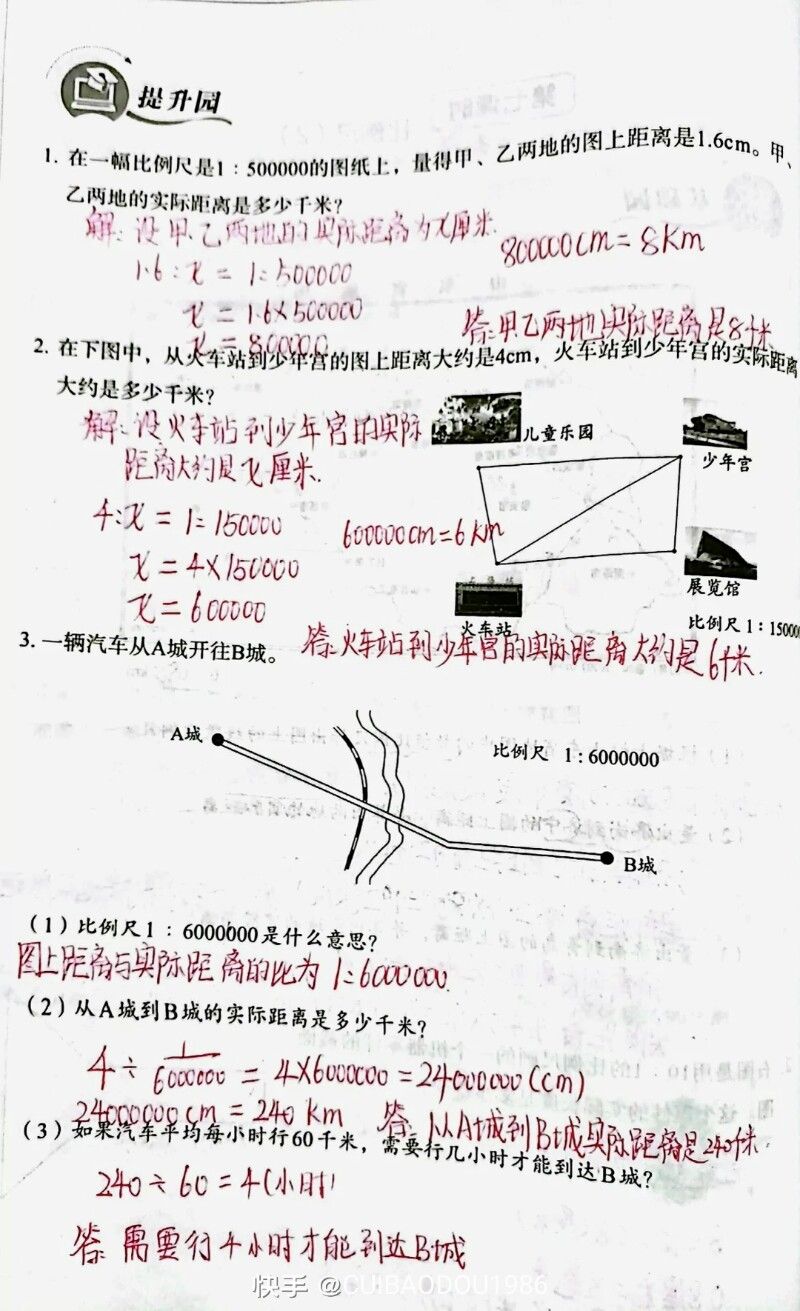 提升园
1. 在一幅比例尺是1：500000的图纸上，量得甲、乙两地的图上距离是1.6cm。甲、
乙两地的实际距离是多少千米？
解：设甲.乙两地的实际距离为x厘米.
1.6：x = 1：500000
800000cm = 8Km
x = 1.6×500000
x = 800000
答：甲乙两地实际距离是8千米
2. 在下图中，从火车站到少年宫的图上距离大约是4cm，火车站到少年宫的实际距离
大约是多少千米？
解：设火车站到少年宫的实际
距离大约是x厘米.
儿童乐园
少年宫
4：x = 1：150000
600000cm=6km
x = 4×150000
x = 600000
展览馆
火车站
比例尺 1：150000
3. 一辆汽车从A城开往B城。
答：火车站到少年宫的实际距离大约是6千米.
A城
比例尺 1：6000000
B城
（1）比例尺1：6000000是什么意思？
图上距离与实际距离的比为1：6000000.
（2）从A城到B城的实际距离是多少千米？
4÷1/6000000 = 4×6000000 = 24000000(cm)
24000000cm = 240 km
答：从A城到B城实际距离是240千米.
（3）如果汽车平均每小时行60千米，需要行几小时才能到达B城？
240÷60=4(小时)
答：需要行4小时才能到达B城
快手 @CUIBAODOU1986